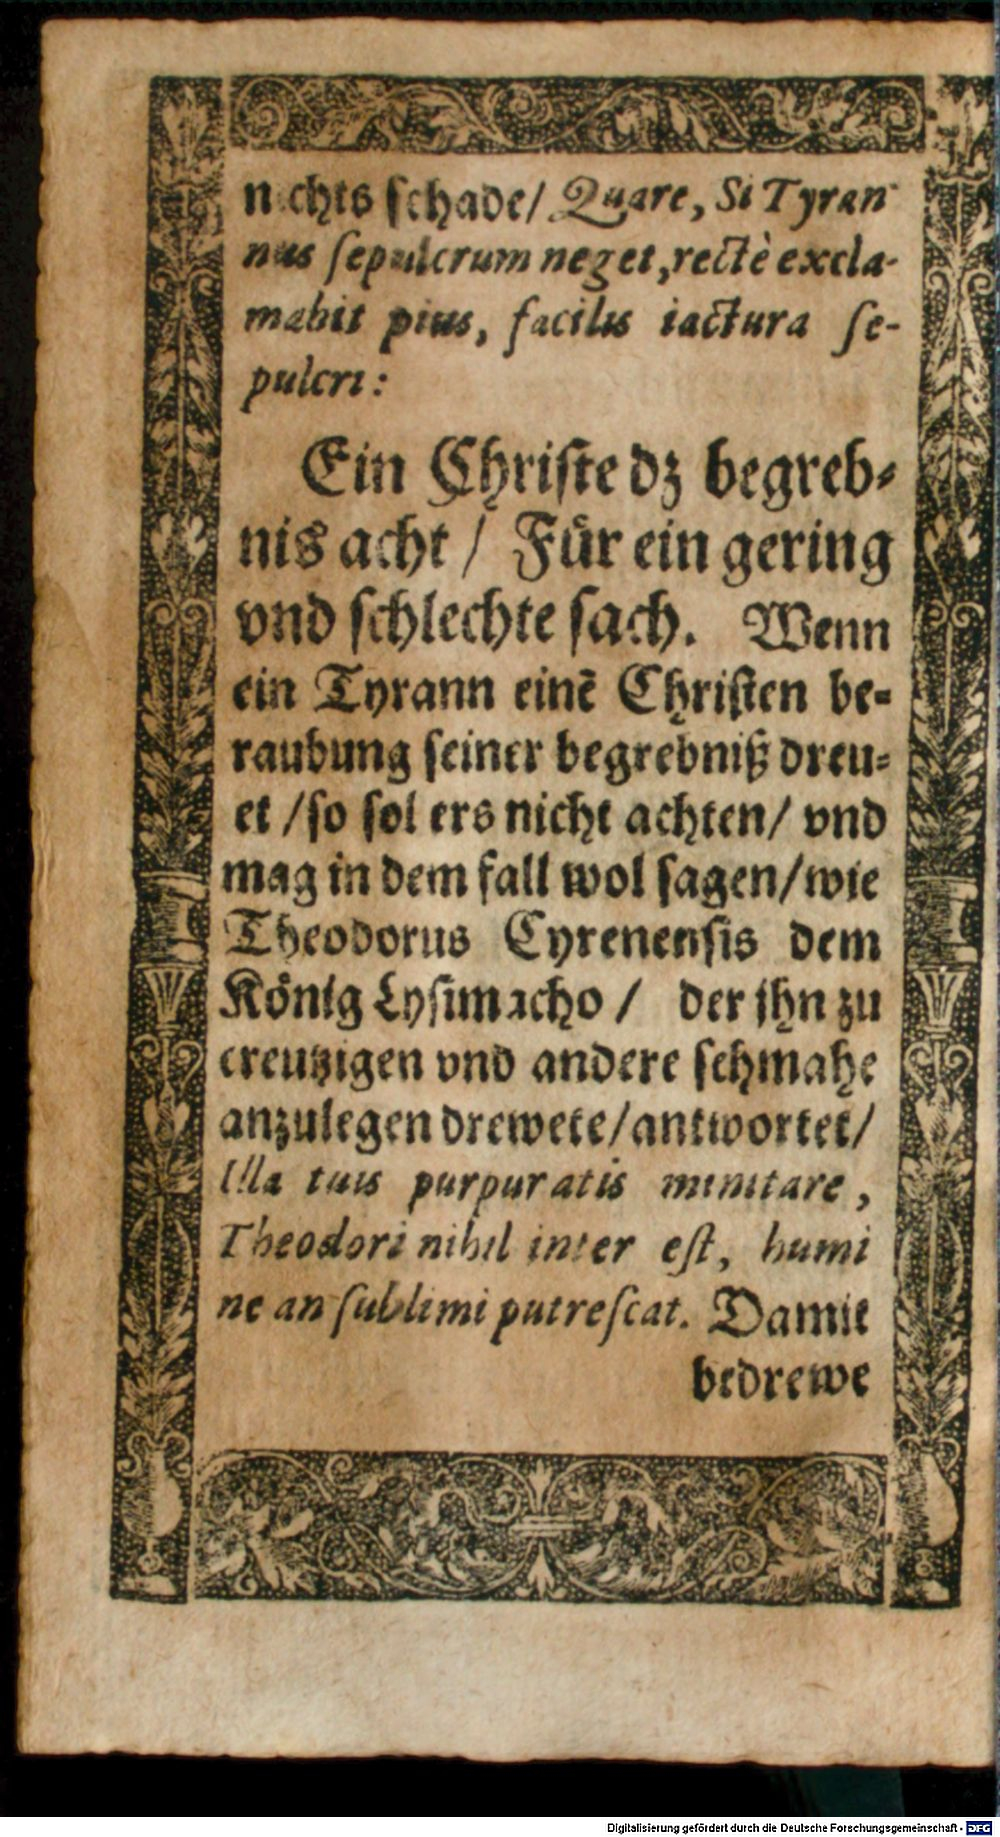 nichts schade/ Quare, Si Tyran
nus ſepulcrum neget, rectè excla-
mabit pius, facilis iactura ſe-
pulcri:
Ein Chriſte dz begreb-
nis acht / Für ein gering
vnd ſchlechte ſach. Wenn
ein Tyrann einē Chriſten be-
raubung ſeiner begrebniß dreu-
et /ſo ſol ers nicht achten/ vnd
mag in dem fall wol ſagen/wie
Theodorus Cyrenenſis dem
König Lyſimacho / der jhn zu
creutzigen vnd andere ſchmahe
anzulegen drewete/antwortet/
Illa tuis purpuratis minitare,
Theodori nihil inter eſt, humi
ne an ſublimi putreſcat. Damit
bedrewe
Digitalisierung gefördert durch die Deutsche Forschungsgemeinschaft - DFG